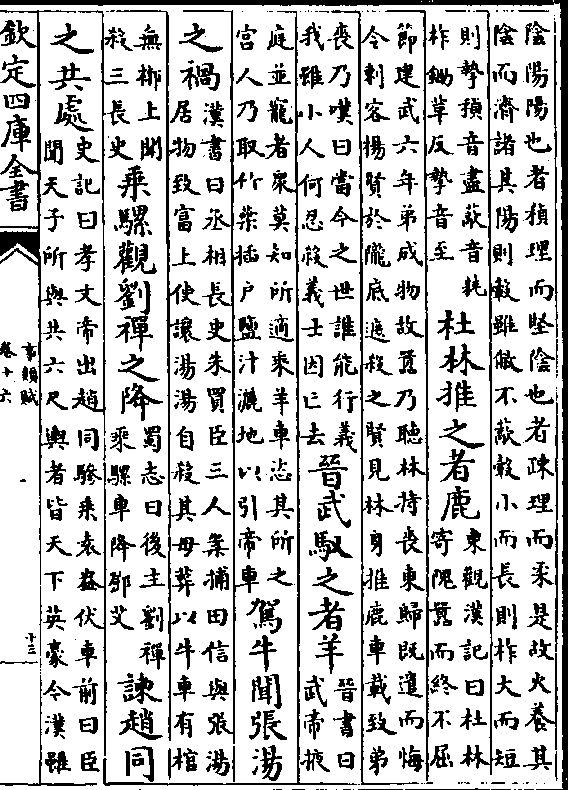 陰陽陽也者稹理而堅陰也者疎理而柔是故火養其
陰而濟諸其陽則轂雖敝不蔌轂小而長則柞大而短
則摯稹音盡蔌音耗
柞鋤草反摯音至
杜林推之者鹿
東觀漢記曰杜林
寄隗囂而終不屈
節建武六年弟成物故囂乃聽林持喪東歸既遣而悔
令刺客楊賢於隴底遮殺之賢見林身推鹿車載致弟
喪乃嘆曰當今之世誰能行義
我雖小人何忍殺義士因亡去
晉武馭之者羊
晉書曰
武帝掖
庭並寵者衆莫知所適乘羊車恣其所之
宮人乃取竹葉插戶鹽汁灑地以引帝車
駕牛聞張湯
之禍
漢書曰丞相長史朱買臣三人案捕田信與張湯
居物致富上使讓湯湯自殺其母葬以牛車有棺
無槨上聞
殺三長史
乘騾觀劉禪之降
蜀志曰後主劉禪
乘騾車降鄧艾
諫趙同
之共處
史記曰孝文帝出趙同驂乘袁盎伏車前曰臣
聞天子所與共六尺輿者皆天下英豪今漢雖
欽定四庫全書
事類賦
卷十六
十三